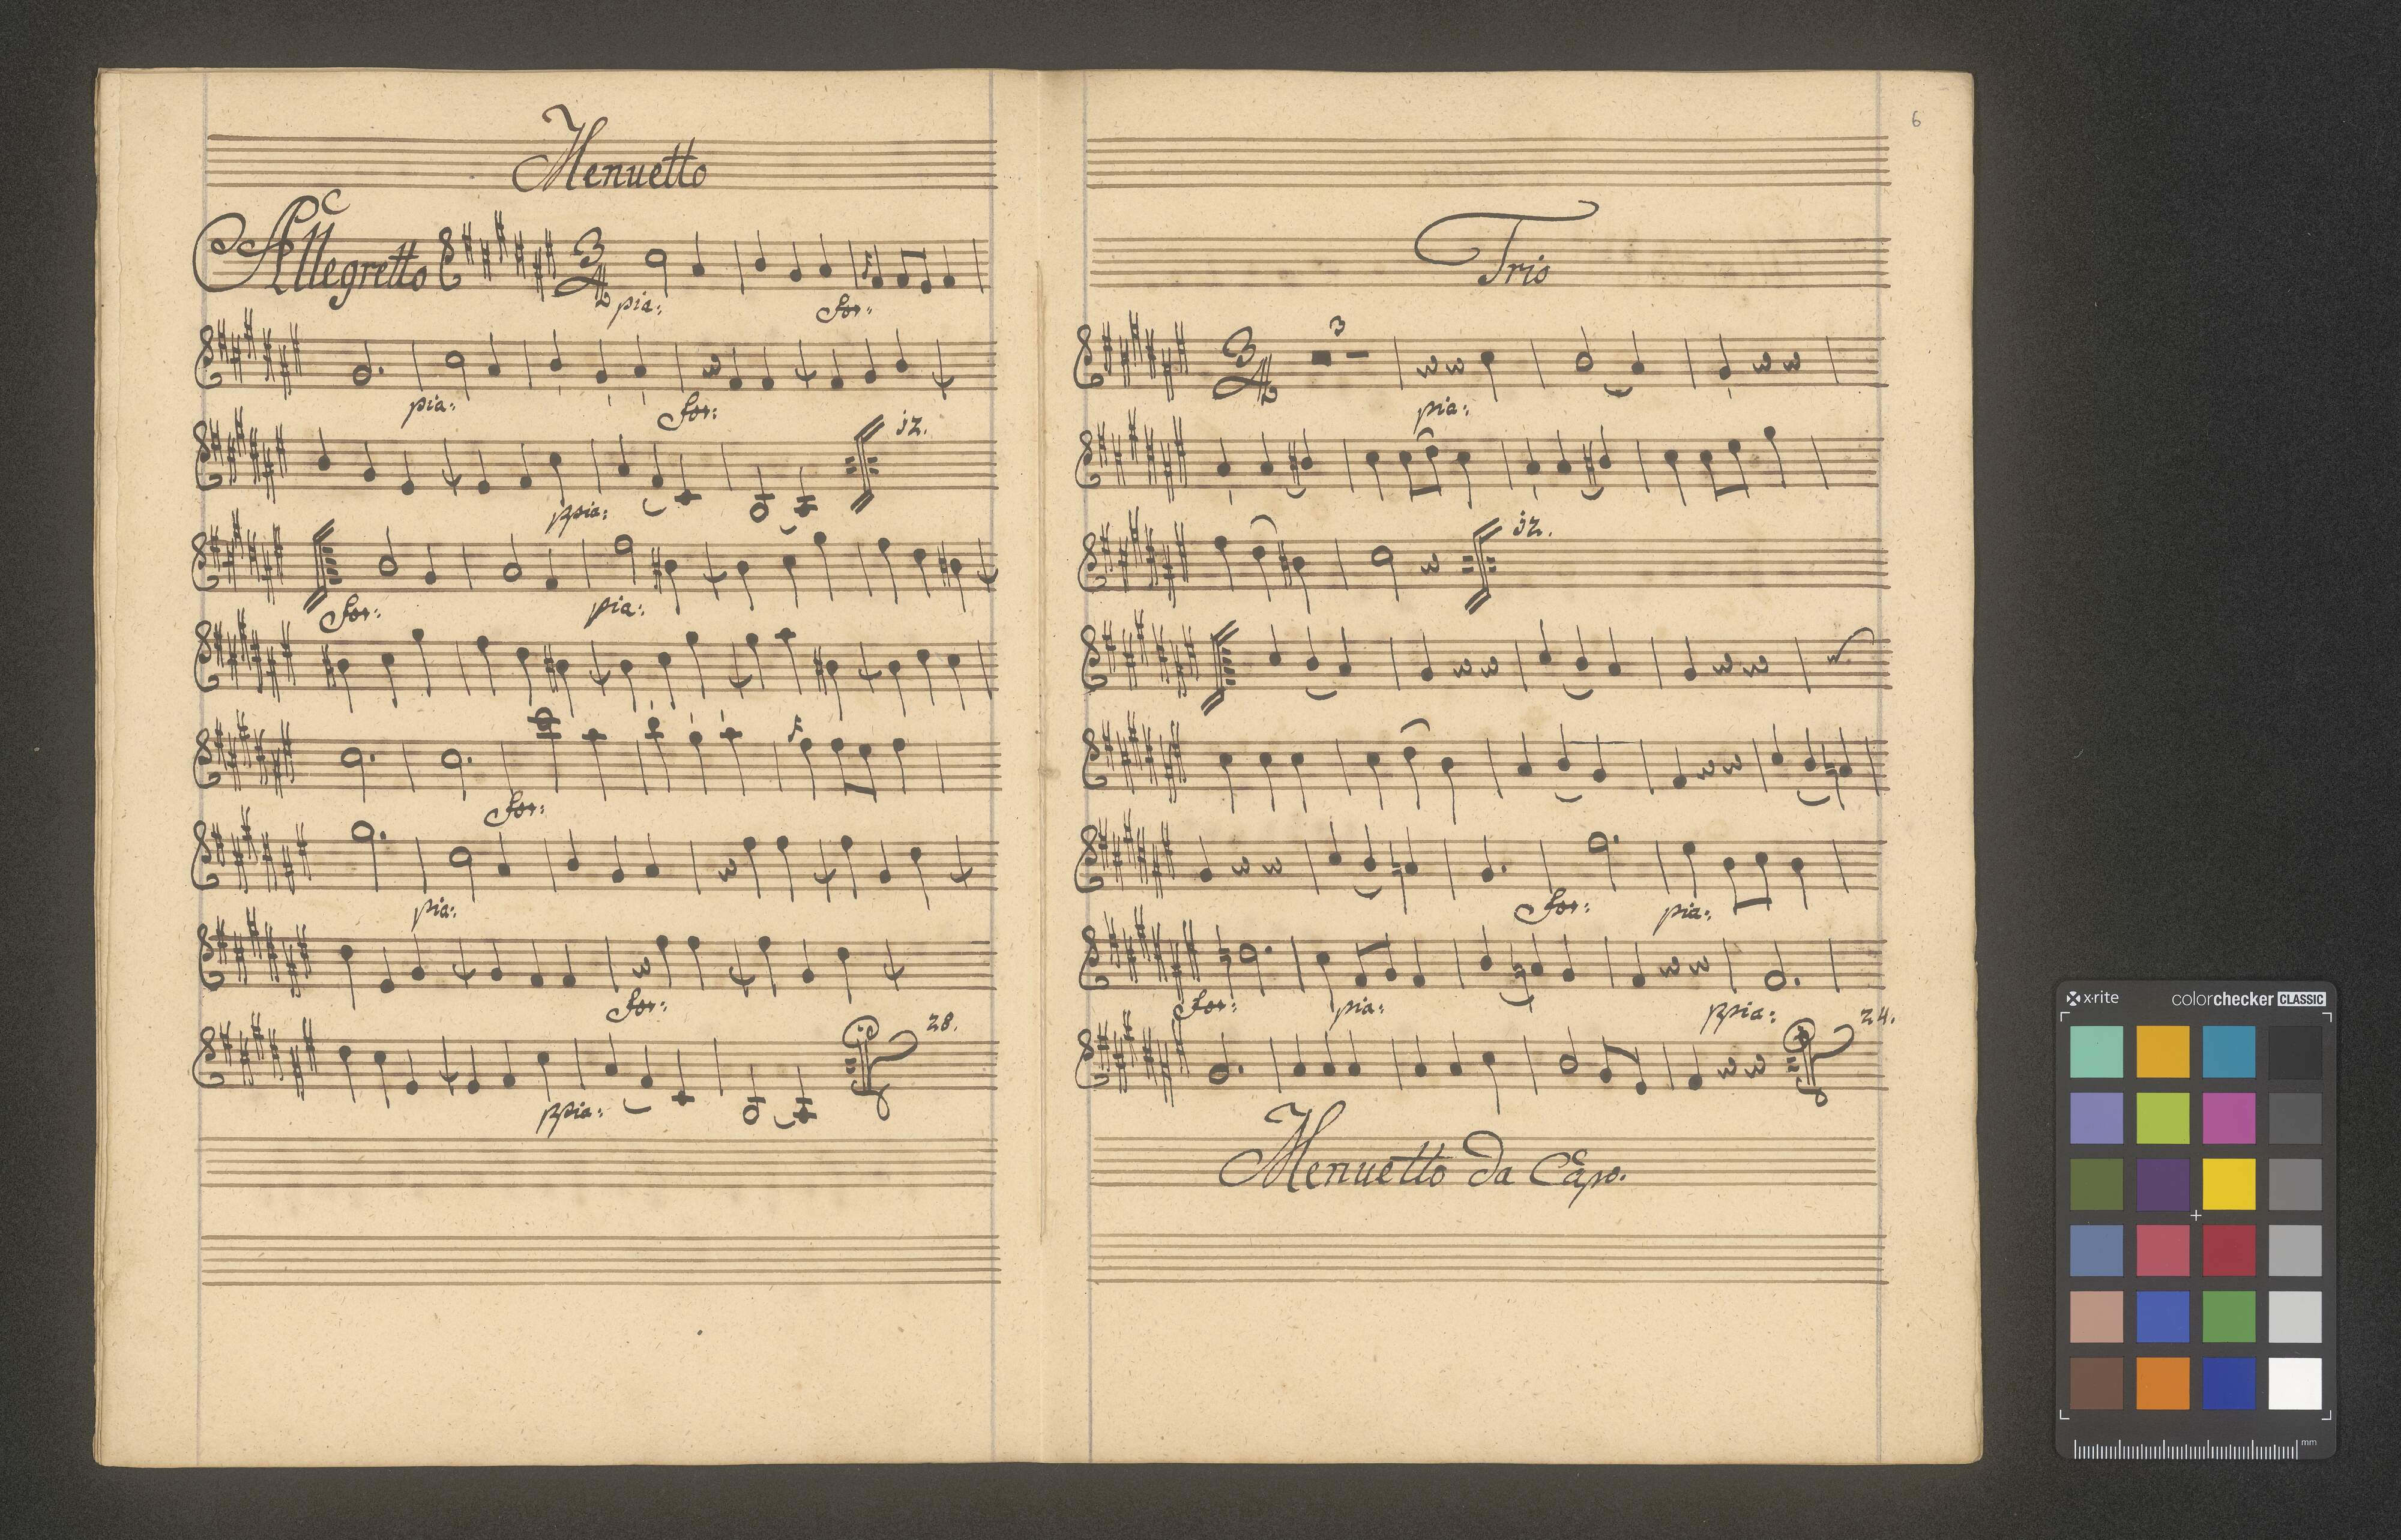 Menuetto
Allegretto
3
4
pia: for:
pia: for:
12.
ppia:
for: pia:
for:
pia:
for:
28.
ppia:
6
Trio
3
3
4
pia:
12.
for: pia:
for: pia: ppia:
24.
Menuetto Da Capo.
x·rite colorchecker CLASSIC
mm